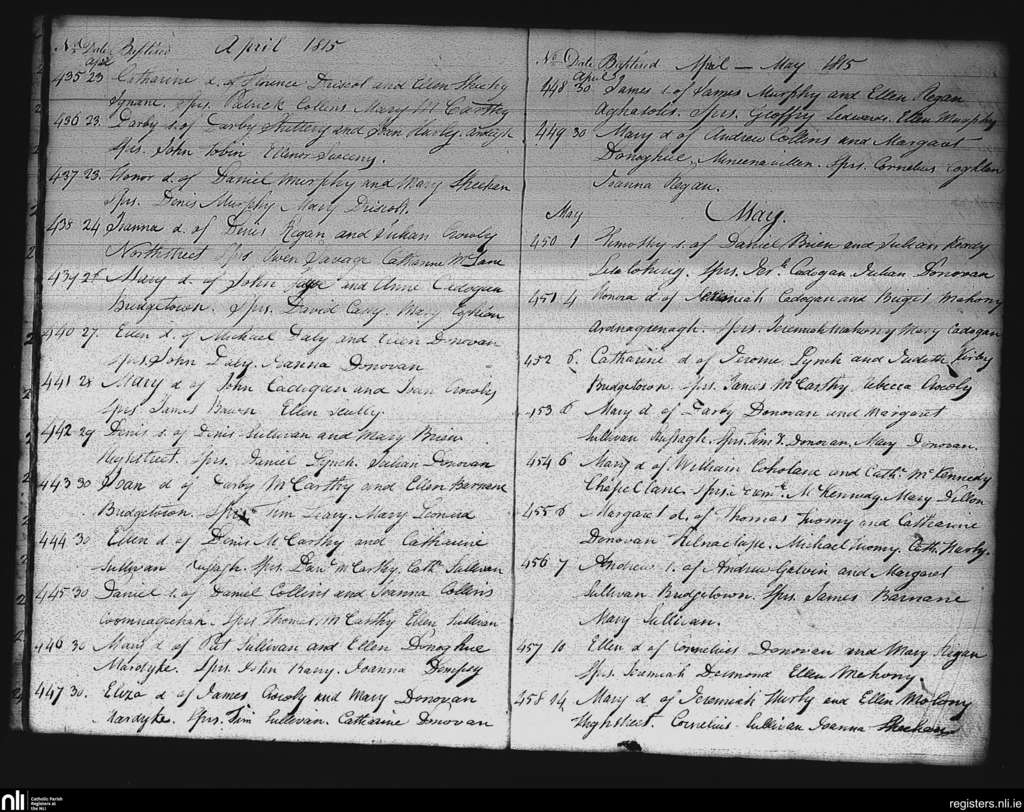 No Date Baptised April 1815
Apl
435 23 Catharine d. of Florence Driscol and Ellen Sheehy
Sprs. Patrick Collins Mary McCarthy
436 23. Darby s. of Darby and Joan Hurly
Sprs. John Tobin Ellenor Sweeny.
437 23. Honor d. of Daniel Murphy and Mary Sheehan
Sprs. Denis Murphy Mary Driscol.
438 24 Joanna d. of Denis Regan and Julian Crowly
Northstreet Sprs. Owen Savage Catharine
439 Mary d. of John and Anne Cadogan
Bridgetown. Sprs. David Mary
440 27. Ellen d. of Michael Daly and Ellen Donovan
Sprs. John Daly. Joanna Donovan
441 28 Mary d. of John Cadigan and Joan Crowly
Sprs. James Ellen Scully
442 29 Denis s. of Denis Sullivan and Mary Brien
Highstreet. Sprs. Daniel Lynch. Julian Donovan
443 30 Joan d. of Darby McCarthy and Ellen Barnane
Bridgetown. Sprs. Tim Leary. Mary Leonard
444 30 Ellen d. of Denis McCarthy and Catharine
Sullivan Sprs. Danl. McCarthy. Cath. Sullivan
445 30 Daniel s. of Daniel Collins and Joanna Collins
Sprs Thomas McCarthy Ellen Sullivan
446 30 Mary d. of Pat Sullivan and Ellen Donoghue
Mardyke. Sprs. John Barry. Joanna Dempsy
447 30. Eliza d. of James Crowly and Mary Donovan
Mardyke. Sprs. Tim Sullivan. Catharine Donovan
No Date Baptised April — May 1815
April
448 30. James s. of James Murphy and Ellen Regan
Aghatolis. Sprs. Geoffry Ellen Murphy
449 30 Mary d. of Andrew Collins and Margaret
Donoghue. Sprs. Cornelius Coghlan
Joanna Regan.
May May.
450 1 Timothy s. of Daniel Brien and Julian
Sprs. Cadogan Julian Donovan
451 4 Honora d. of Jeremiah Cadogan and Mahony
Ardnagreenagh. Sprs. Jeremiah Mahony Mary Cadogan
452 6. Catharine d. of Jerome Lynch and Judeth Kirby
Bridgetown. Sprs. James McCarthy. Rebecca Crowly
453 6 Mary d. of Darby Donovan and Margaret
Sullivan Sprs. Tim Donovan. Mary Donovan.
454 6 Mary d. of William Coholane and Cath. McKennedy
Chapel lane. Sprs. McKennedy. Mary Dillon
455 6 Margaret d. of Thomas Twomy and Catharine
Donovan Michael Twomy. Cath. Hurly.
456 7 Andrew s. of Andrew Galvin and Margaret
Sullivan Bridgetown. Sprs. James Barnane
Mary Sullivan.
457 10 Ellen d. of Cornelius Donovan and Mary Regan
Sprs. Jeremiah Desmond Ellen Mahony.
458 14 Mary d. of Jeremiah Hurly and Ellen Molony
Highstreet. Cornelius Sullivan Joanna Sheehan
nli Catholic Parish
Registers at
the NLI
registers.nli.ie